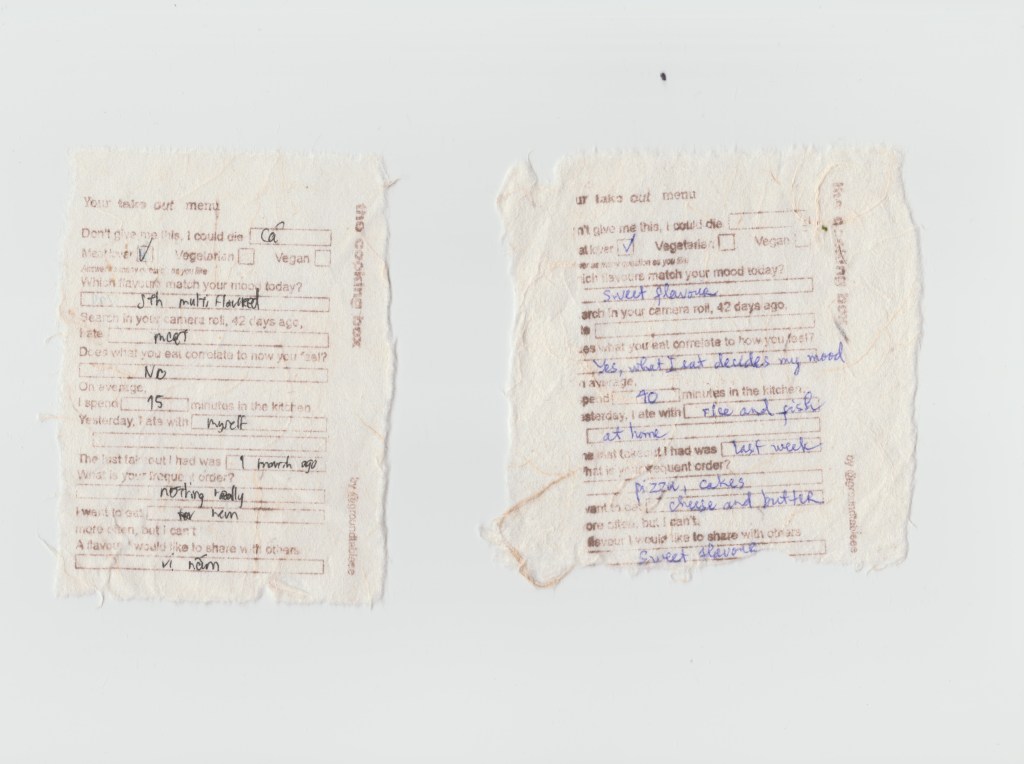 Your take out menu
Don't give me this, I could die Cá
Meat lover ✓ Vegetarian Vegan
as you like
Which flavours match your mood today?
Sth multi flavored
Search in your camera roll, 42 days ago,
I ate meet
Does what you eat correlate to how you feel?
No
On average,
I spend 15 minutes in the kitchen
Yesterday, I ate with myself
The last take out I had was 1 month ago
What is your frequent order?
nothing really
I want to eat nem
more often, but I can't
A flavour I would like to share with others
vị nấm
the cooking box
ur take out menu
n't give me this, I could die
at lover ✓ Vegetarian Vegan
as you like
ich flavours match your mood today?
Sweet flavour
arch in your camera roll, 42 days ago,
te
es what you eat correlate to how you feel?
Yes, what I eat decides my mood
n average,
pend 40 minutes in the kitchen
sterday, I ate with rice and fish
at home
e last take out I had was last week
hat is your frequent order?
pizza, cakes
want to eat cheese and butter
ore often, but I can't.
flavour I would like to share with others
Sweet flavour